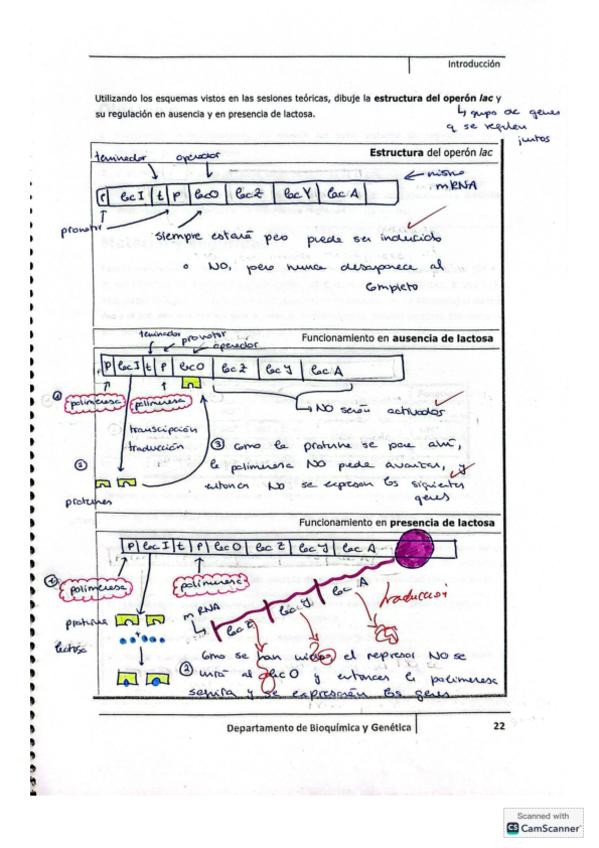 Introducción
Utilizando los esquemas vistos en las sesiones teóricas, dibuje la estructura del operón lac y
su regulación en ausencia y en presencia de lactosa.
↳ grupo de genes
q se regulan
juntos
Estructura del operón lac
terminador
operador
← mismo
mRNA
P lacI t P lacO lacZ lacY lacA
promotor
siempre estará pero puede ser inducido
o NO, pero nunca desaparece al
completo
Funcionamiento en ausencia de lactosa
terminador
promotor
operador
P lacI t P lacO lacZ lacY lacA
① polimerasa polimerasa
NO serán activados
transcripción
traducción
③ Como la proteína se pone ahí,
la polimerasa NO puede avanzar, y
entonces NO se expresan los siguientes
genes
②
proteínas
Funcionamiento en presencia de lactosa
P lacI t P lacO lacZ lacY lacA
① polimerasa polimerasa
mRNA
lacZ lacY lacA
traducción
proteína
+
lactosa
Como se han unido, el represor NO se
② unirá al lacO y entonces la polimerasa
seguirá y se expresarán los genes
Departamento de Bioquímica y Genética
22
Scanned with
CS CamScanner